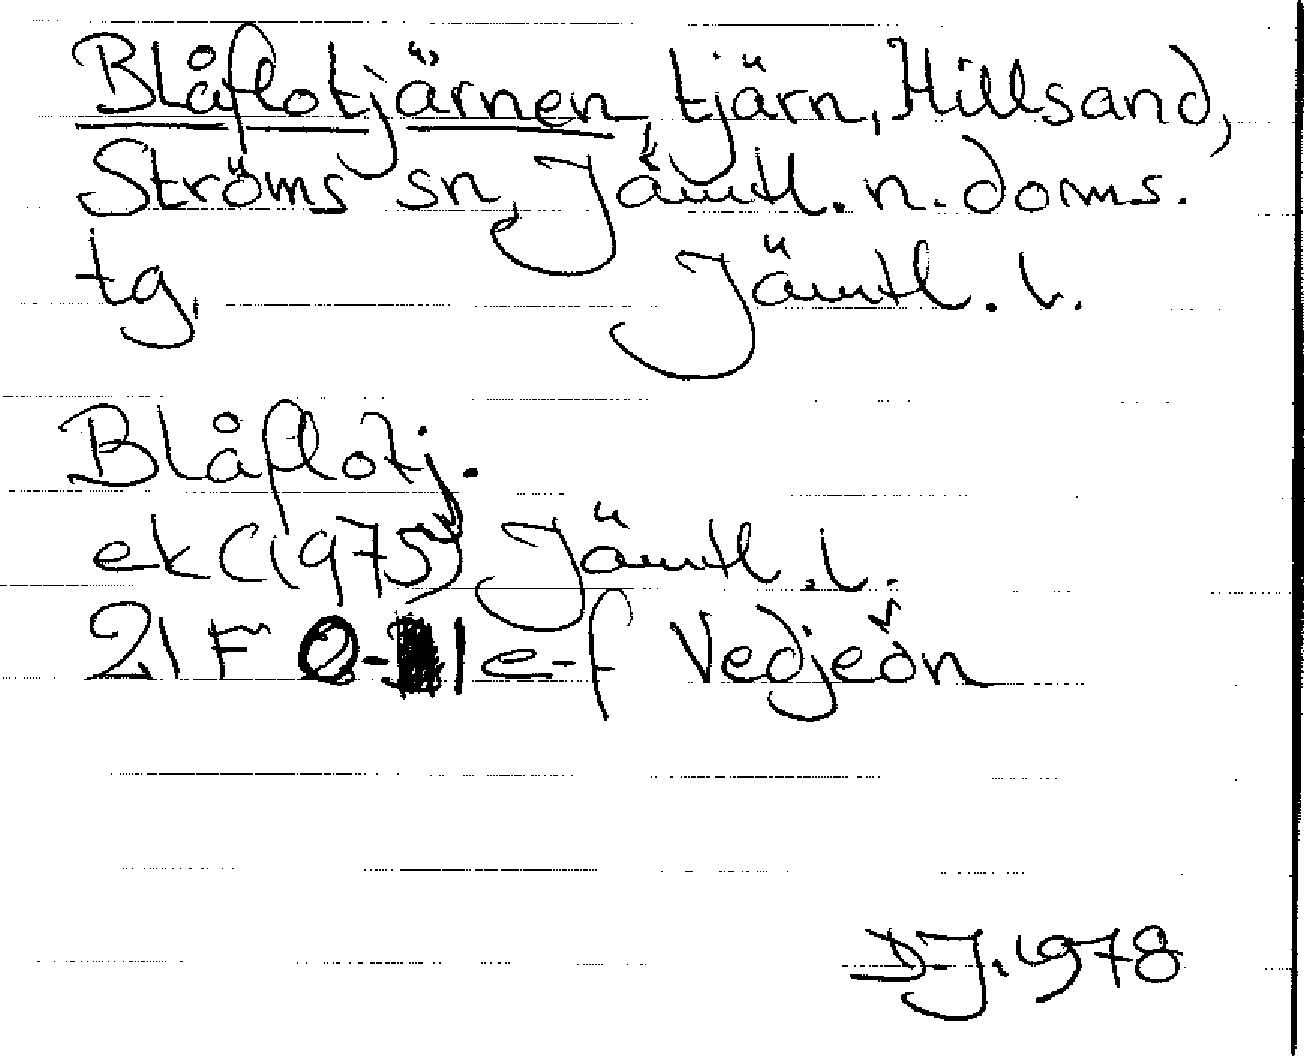 Blåflotjärnen, tjärn, Hillsand,
Ströms sn, Jämtl. n. doms.
tg. Jämtl. l.
Blåflotj.
ek (1975) Jämtl. l.
21 F 0-1 e-f Vedjeön
DJ. 1978